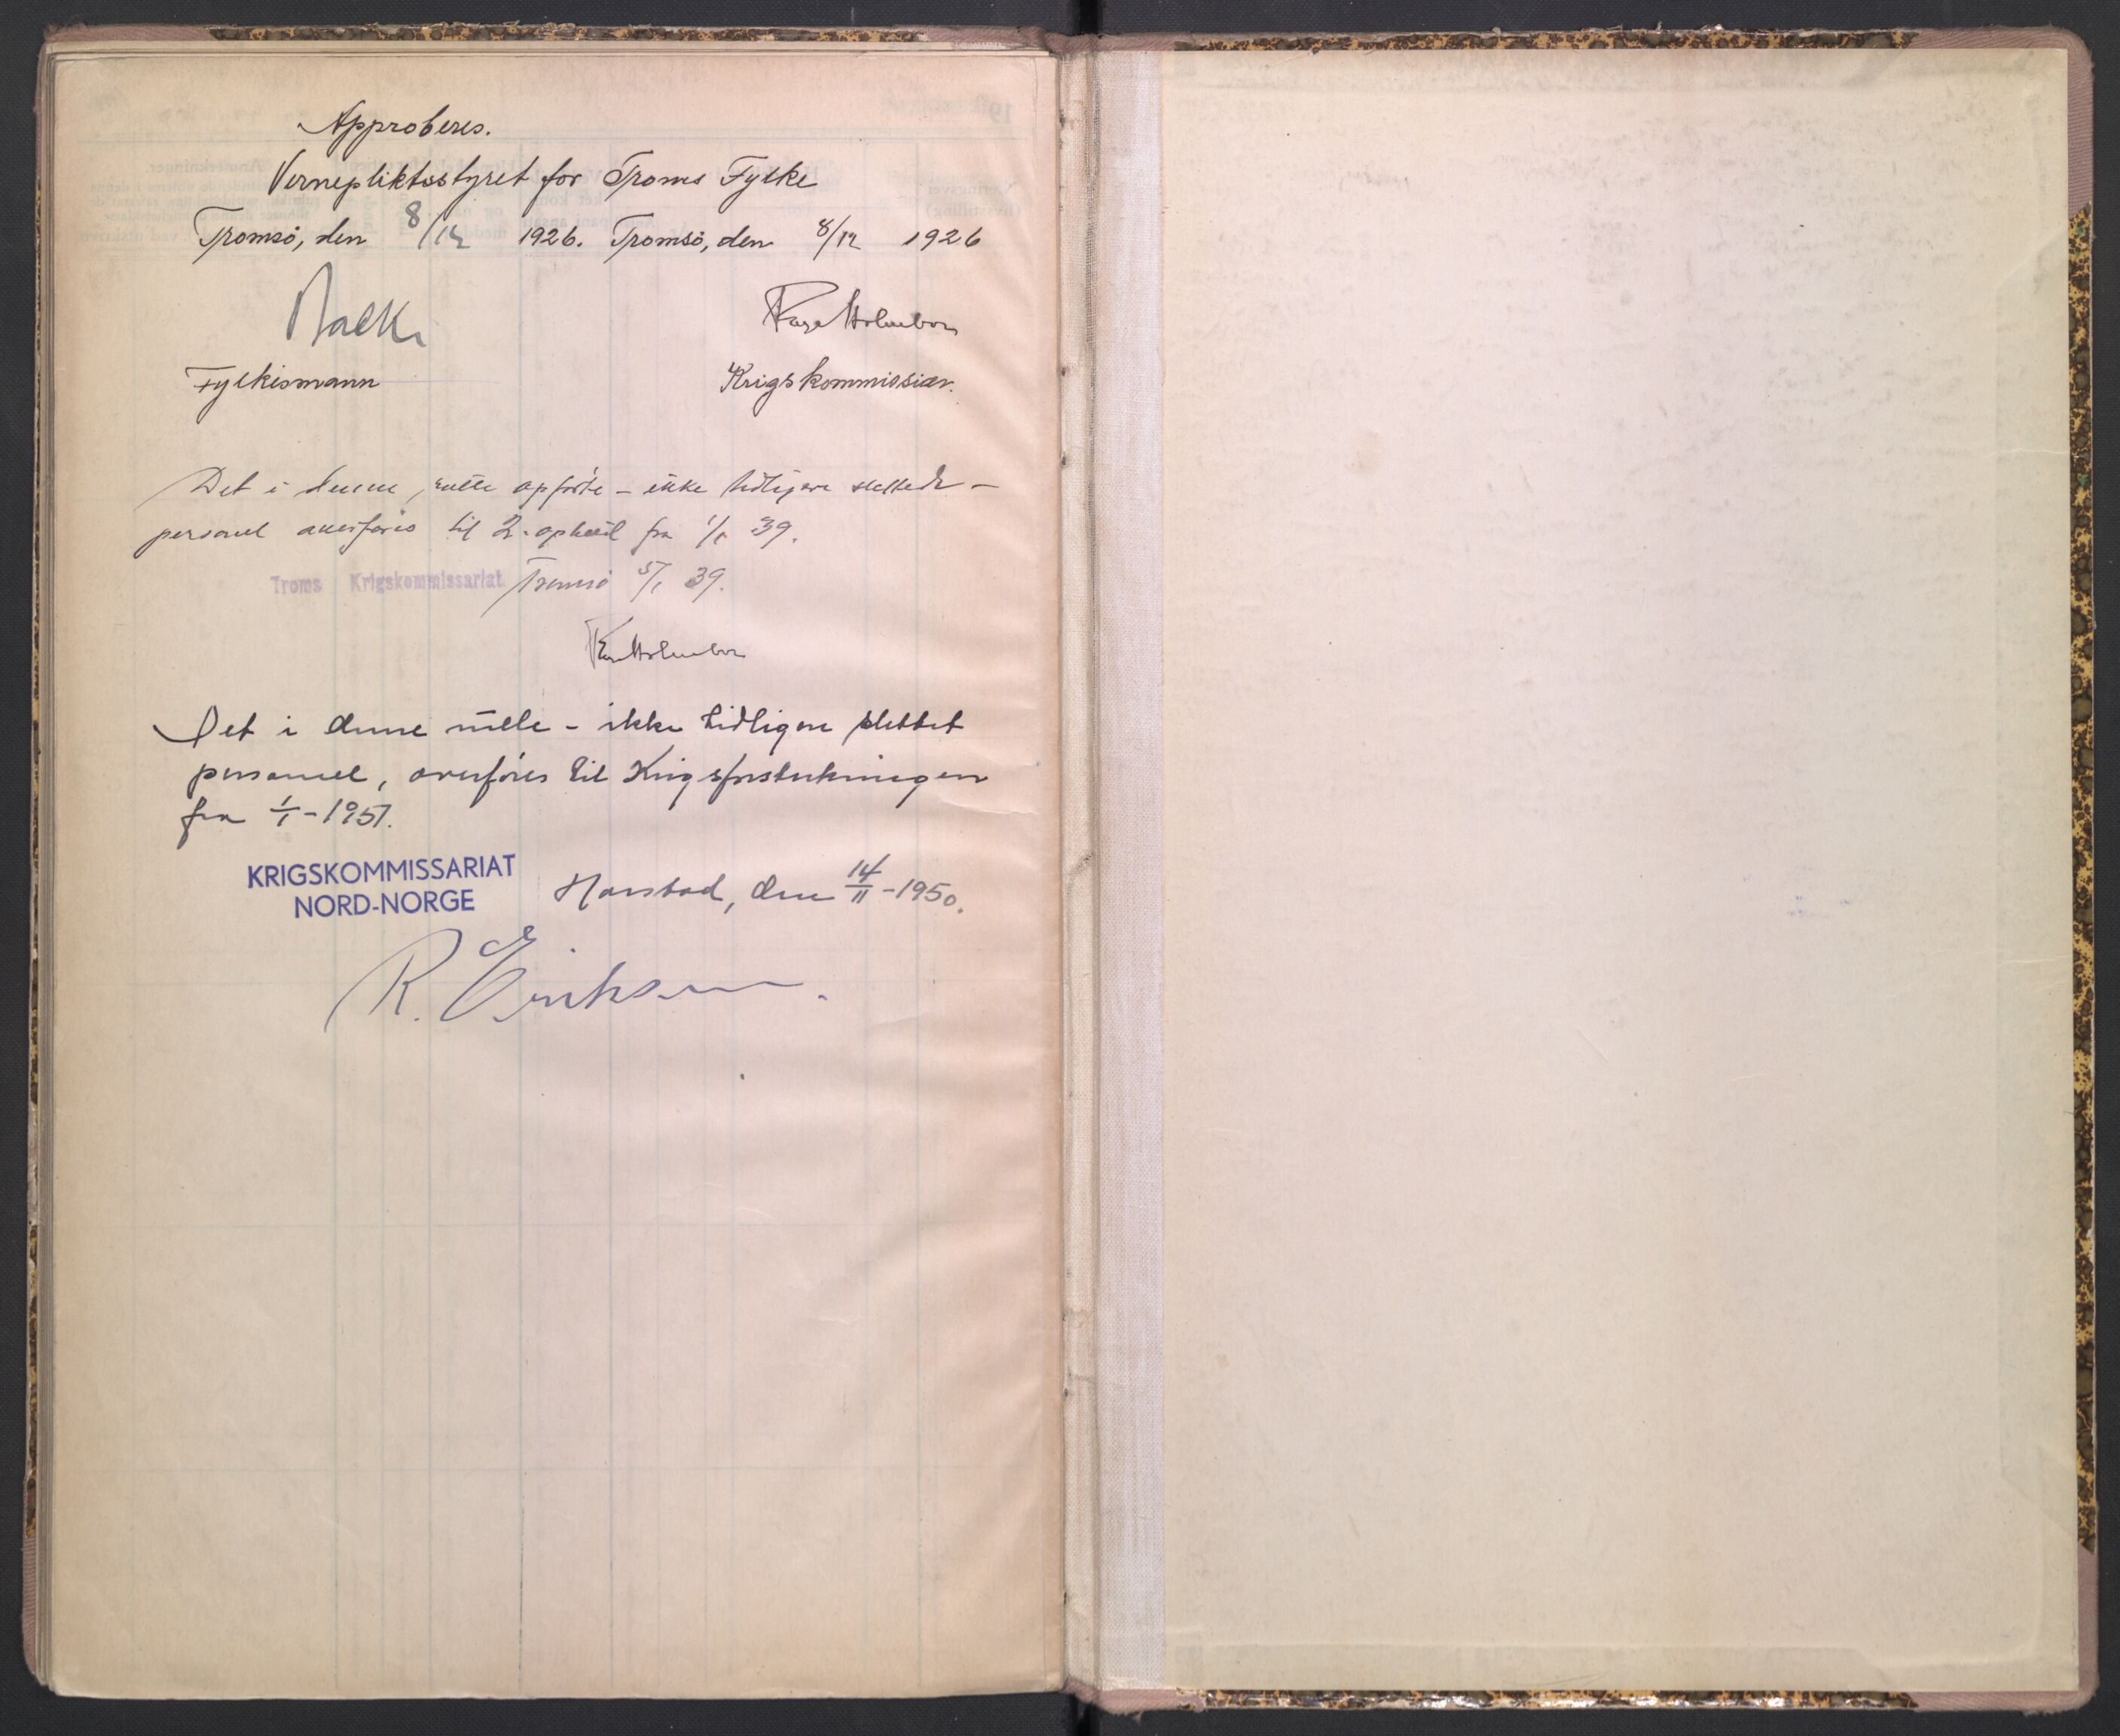 Approberes.
Vernepliktsstyret for Troms Fylke
Tromsö, den 8/12 1926. Tromsö, den 8/12 1926
Fylkesmann Krigskommissær.
Det i denne rulle opførte – ikke tidligere slettede –
personel overføres til 2. opbud fra 1/1 39.
Troms Krigskommissariat Tromsö 5/1 39.
Det i denne rulle – ikke tidligere slettet
personel, overføres til Krigsforsterkningen
fra 1/1-1951.
KRIGSKOMMISSARIAT
NORD-NORGE
Harstad, den 14/11-1950.
R. Eriksen.